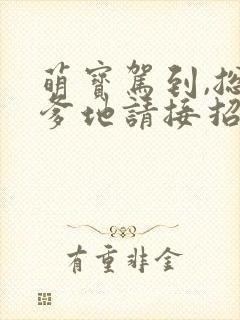 萌寶駕到,總
爹地請接招
有重非金